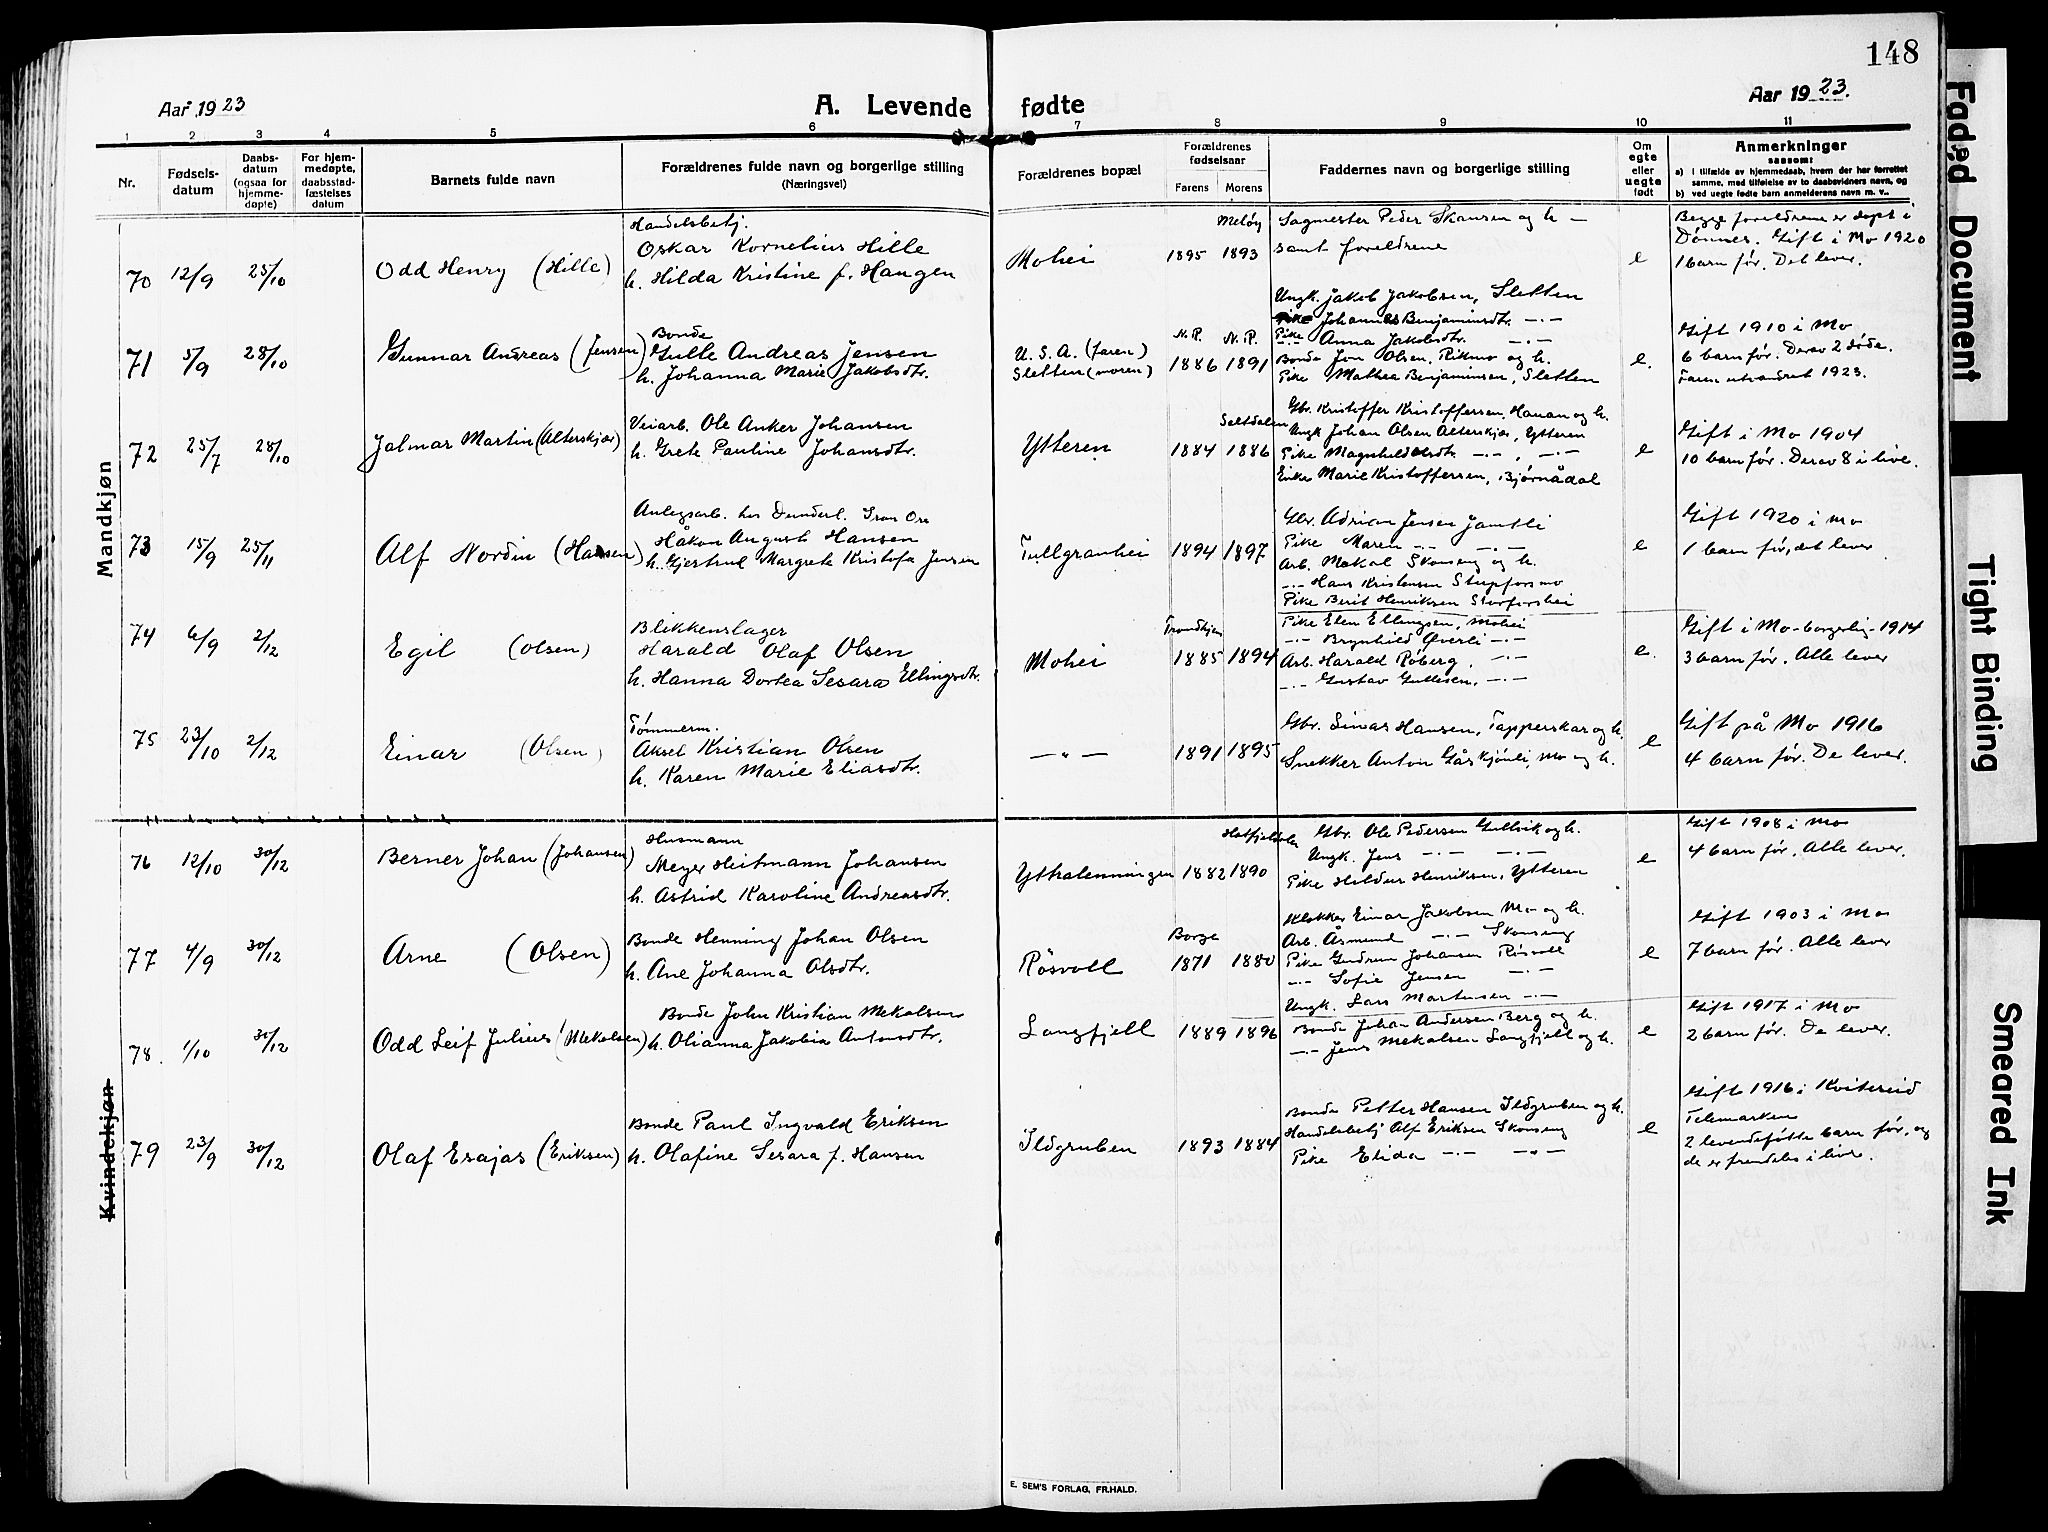 148
Aar 1923
A. Levende fødte
Aar 1923.
1 2 3 4 5 6 7 8 9 10 11
Nr.
Fødsels-
datum
Daabs-
datum
(ogsaa for
hjemme-
døpte)
For hjem-
medøpte,
daabsstad-
fæstelses
datum
Barnets fulde navn
Forældrenes fulde navn og borgerlige stilling
(Næringsvei)
Forældrenes bopæl
Forældrenes
fødselsaar
Farens Morens
Faddernes navn og borgerlige stilling
Om
egte
eller
uegte
født
Anmerkninger
saasom:
a) i tilfælde av hjemmedaab, hvem der har forrettet
samme, med tilføielse av to daabsvidners navn, og
b) ved uegte fødte barn anmelderens navn m. v..
Mandkjøn
70 12/9 25/10 Odd Henry (Hille)
Handelsbetj.
Oskar Kornelius Hille
h. Hilda Kristine f. Haugen
Mohei
Meløy
1895 1893
Sagmester Peder Skansen og h —
samt foreldrene
e
Begge foreldrene er døpt i
Dønnes. Gift i Mo 1920
1 barn før. Det lever.
71 5/9 28/10 Gunnar Andreas (Jensen)
Bonde
Gulle Andreas Jensen
h. Johanna Marie Jakobsdtr.
U.S.A. (faren)
Sletten (moren)
N.R. N.R.
1886 1891
Ungk. Jakob Jakobsen, Sletten
Pike Johannes Benjaminsdtr. —〃—
Pike Anna Jakobsdtr. —〃—
Bonde Jon Olsen, Rikmo og h.
Pike Mathea Benjaminsen, Sletten
e.
Gift 1910 i Mo
6 barn før. Derav 2 døde.
Faren utvandret 1923.
72 25/7 28/10 Jalmar Martin (Alterskjær)
Veiarb. Ole Anker Johansen
h. Grete Pauline Johansdtr.
Ytteren
Saltdalen
1884 1886
Gbr. Kristoffer Kristoffersen, Hauan og h.
Ungk Johan Olsen Alterskjær, Ytteren
Pike Magnhild Olsdtr. —〃—, —〃—
Enke Marie Kristoffersen, Bjørnådal
e
Gift i Mo 1904
10 barn før. Derav 8 i live.
73 15/9 25/11 Alf Nordin (Hansen)
Anlegsarb. hos Dunderl. Iron Ore
Håkon August Hansen
h. Gjertrud Margrete Kristofa Jensen
Tullgranhei
1894 1897
Gbr. Adrian Jensen Jamtli
Pike Maren —〃— —〃—
Arb. Mekal Skonseng og h.
—〃— Hans Kristensen Stupforsmo
Pike Berit Henriksen Storforshei
e
Gift 1920 i Mo
1 barn før, det lever
74 6/9 2/12 Egil (Olsen)
Blikkenslager
Harald Olaf Olsen
h. Hanna Dortea Sesara Ellingsdtr.
Mohei
Trondhjem
1885 1894
Pike Elen Ellingsen, Mohei
—〃— Brynhild Øverli —〃—
Arb. Harald Røberg, —〃—
—〃— Gustav Gullesen, —〃—
e.
Gift i Mo-borgerlig-1914
3 barn før. Alle lever
75 23/10 2/12 Einar (Olsen)
Tømmerm.
Aksel Kristian Olsen
h. Karen Marie Eliasdtr.
—〃—
1891 1895
Gbr. Sinas Hansen, Tapperskar og h.
Snekker Anton Gåskjønli, Mo og h.
e
Gift på Mo 1916
4 barn før. De lever.
76 12/10 30/12 Berner Johan (Johansen)
Husmann
Meyer Heitmann Johansen
h. Astrid Karoline Andreasdtr.
Ythalenningen
Hatfjelddalen
1882 1890
Gbr. Ole Pedersen Gullvik og h.
Ungk. Jens —〃— —〃—
Pike Hildur Henriksen, Ytteren
e
Gift 1908 i Mo
4 barn før. Alle lever.
77 4/9 30/12 Arne (Olsen)
Bonde Henning Johan Olsen
h. Ane Johanna Olsdtr.
Røsvoll
Borge
1871 1880
Klokker Einar Jakobsen Mo og h.
Arb. Åsmund —〃— Skonseng
Pike Gudrun Johansen Røsvoll
—〃— Sofie Jensen —〃—
Ungk. Lars Martensen —〃—
e
Gift 1903 i Mo
7 barn før. Alle lever
78. 1/10 30/12 Odd Leif Julius (Mekalsen)
Bonde John Kristian Mekalsen
h. Olianna Jakobia Antonsdtr.
Langfjell
1889 1896
Bonde Johan Andersen Berg og h.
—〃— Jens Mekalsen Langfjell og h.
e
Gift 1917 i Mo
2 barn før. De lever.
Kvindekjøn
79 23/9 30/12 Olaf Esajas (Eriksen)
Bonde Paul Ingvald Eriksen
h. Olafine Sesara f. Hansen
Ildgruben
1893 1884
Bonde Petter Hansen Ildgruben og h.
Handelsbetj Alf Eriksen Skonseng
Pike Elida —〃— —〃—
e
Gift 1916 i Kviteseid
Telemarken
2 levendefødte barn før, og
de er fremdeles i live.
E. SEM'S FORLAG, FR.HALD.
Faded Document
Tight Binding
Smeared Ink